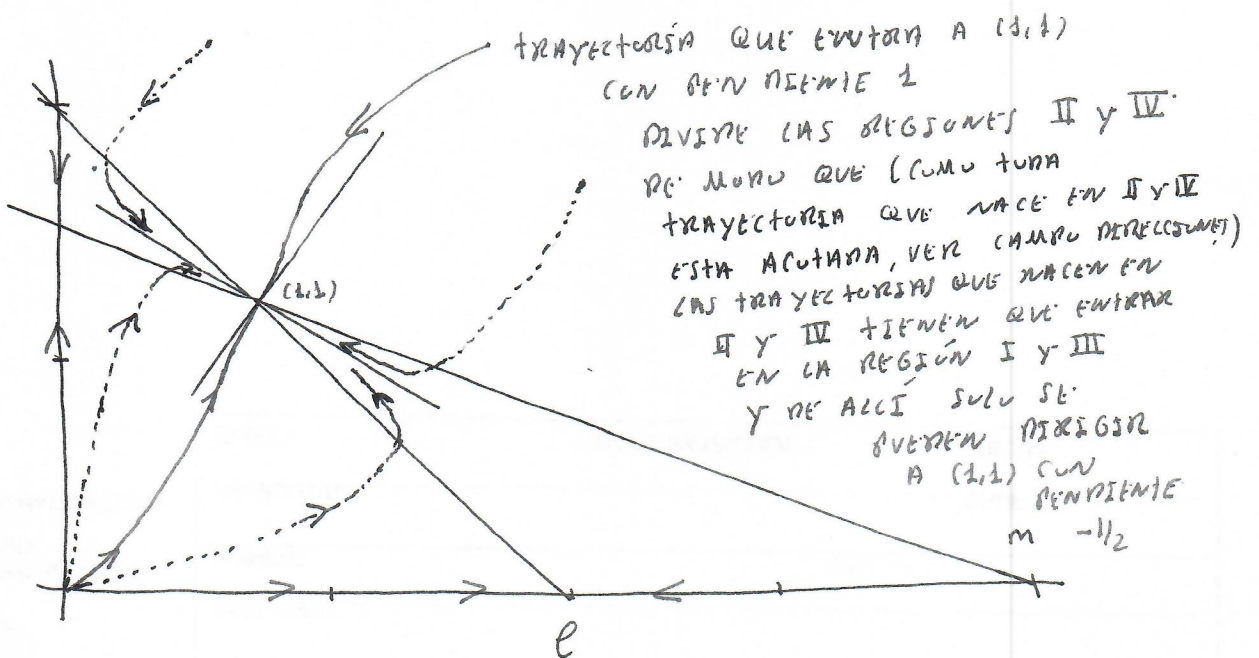 TRAYECTORÍA QUE ENTORA A (1,1)
CON PENDIENTE 1
DIVIDE LAS REGIONES II y IV
DE MODO QUE (COMO TODA
TRAYECTORIA QUE NACE EN II y IV
ESTA ACOTADA, VER CAMPO DIRECCIONES)
LAS TRAYECTORIAS QUE NACEN EN
II y IV TIENEN QUE ENTRAR
EN LA REGIÓN I y III
Y DE ALLÍ SOLO SE
PUEDEN DIRIGIR
A (1,1) CON
PENDIENTE
m -1/2
(1,1)
e